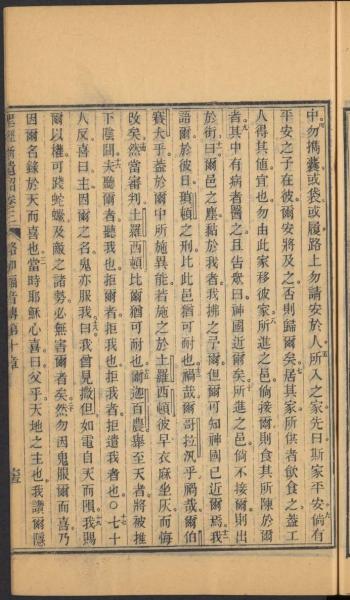 中勿攜囊或袋或履路上勿請安於人所入之家先曰斯家平安倘有
平安之子在彼爾安將及之否則歸爾矣居其家所供者飲食之蓋工
人得其値宜也勿由此家移彼家所進之邑倘接爾則食其所陳於爾
者其中有病者醫之且告衆曰神國近爾矣所進之邑倘不接爾則出
於街曰爾邑之塵黏於我者我拂之予爾但爾可知神國已近爾焉我
語爾於彼日瑣頓之刑比此邑猶可耐也禍哉爾哥拉汛乎禍哉爾伯
賽大乎蓋於爾中所施異能若施之於土羅西頓彼早衣麻坐灰而悔
改矣然當審判土羅西頓比爾猶可耐也爾迦百農舉至天者將被推
下陰間夫聽爾者聽我也拒爾者拒我也拒我者拒遣我者也○七十
人反喜曰主因爾之名鬼亦服我曰我曾見撒但如電自天而隕我賜
爾以權可踐蛇蠍及敵之諸勢必無害爾者矣然勿因鬼服爾而喜乃
因爾名錄於天而喜也當時耶穌心喜曰父乎天地之主也我讚爾隱
聖經新遺詔卷三 路加福音傳第十章